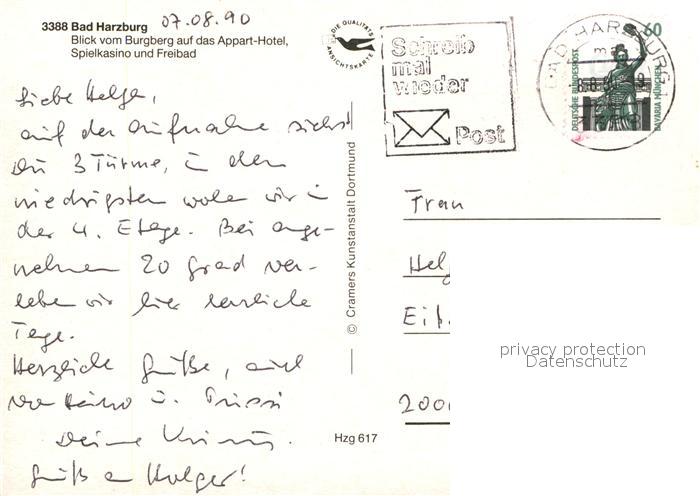 3388 Bad Harzburg 07.08.90
Blick vom Burgberg auf das Appart-Hotel,
Spielkasino und Freibad
DIE QUALITÄTS
ANSICHTSKARTE
Schreib
mal
wieder
Post
BAD HARZBURG
60
DEUTSCHE BUNDESPOST
BAVARIA MÜNCHEN
Liebe Helga,
auf der Aufnahme siehst
Du 3 Türme, in dem
niedrigsten wohnen wir in
der 4. Etage. Bei ange-
nehmen 20 Grad ver-
leben wir hier herrliche
Tage.
Herzliche Grüße, auch
von Heino u.
Deine
Gruß an Holger!
© Cramers Kunstanstalt Dortmund
Hzg 617
Frau
Helg
Eif
200
privacy protection
Datenschutz